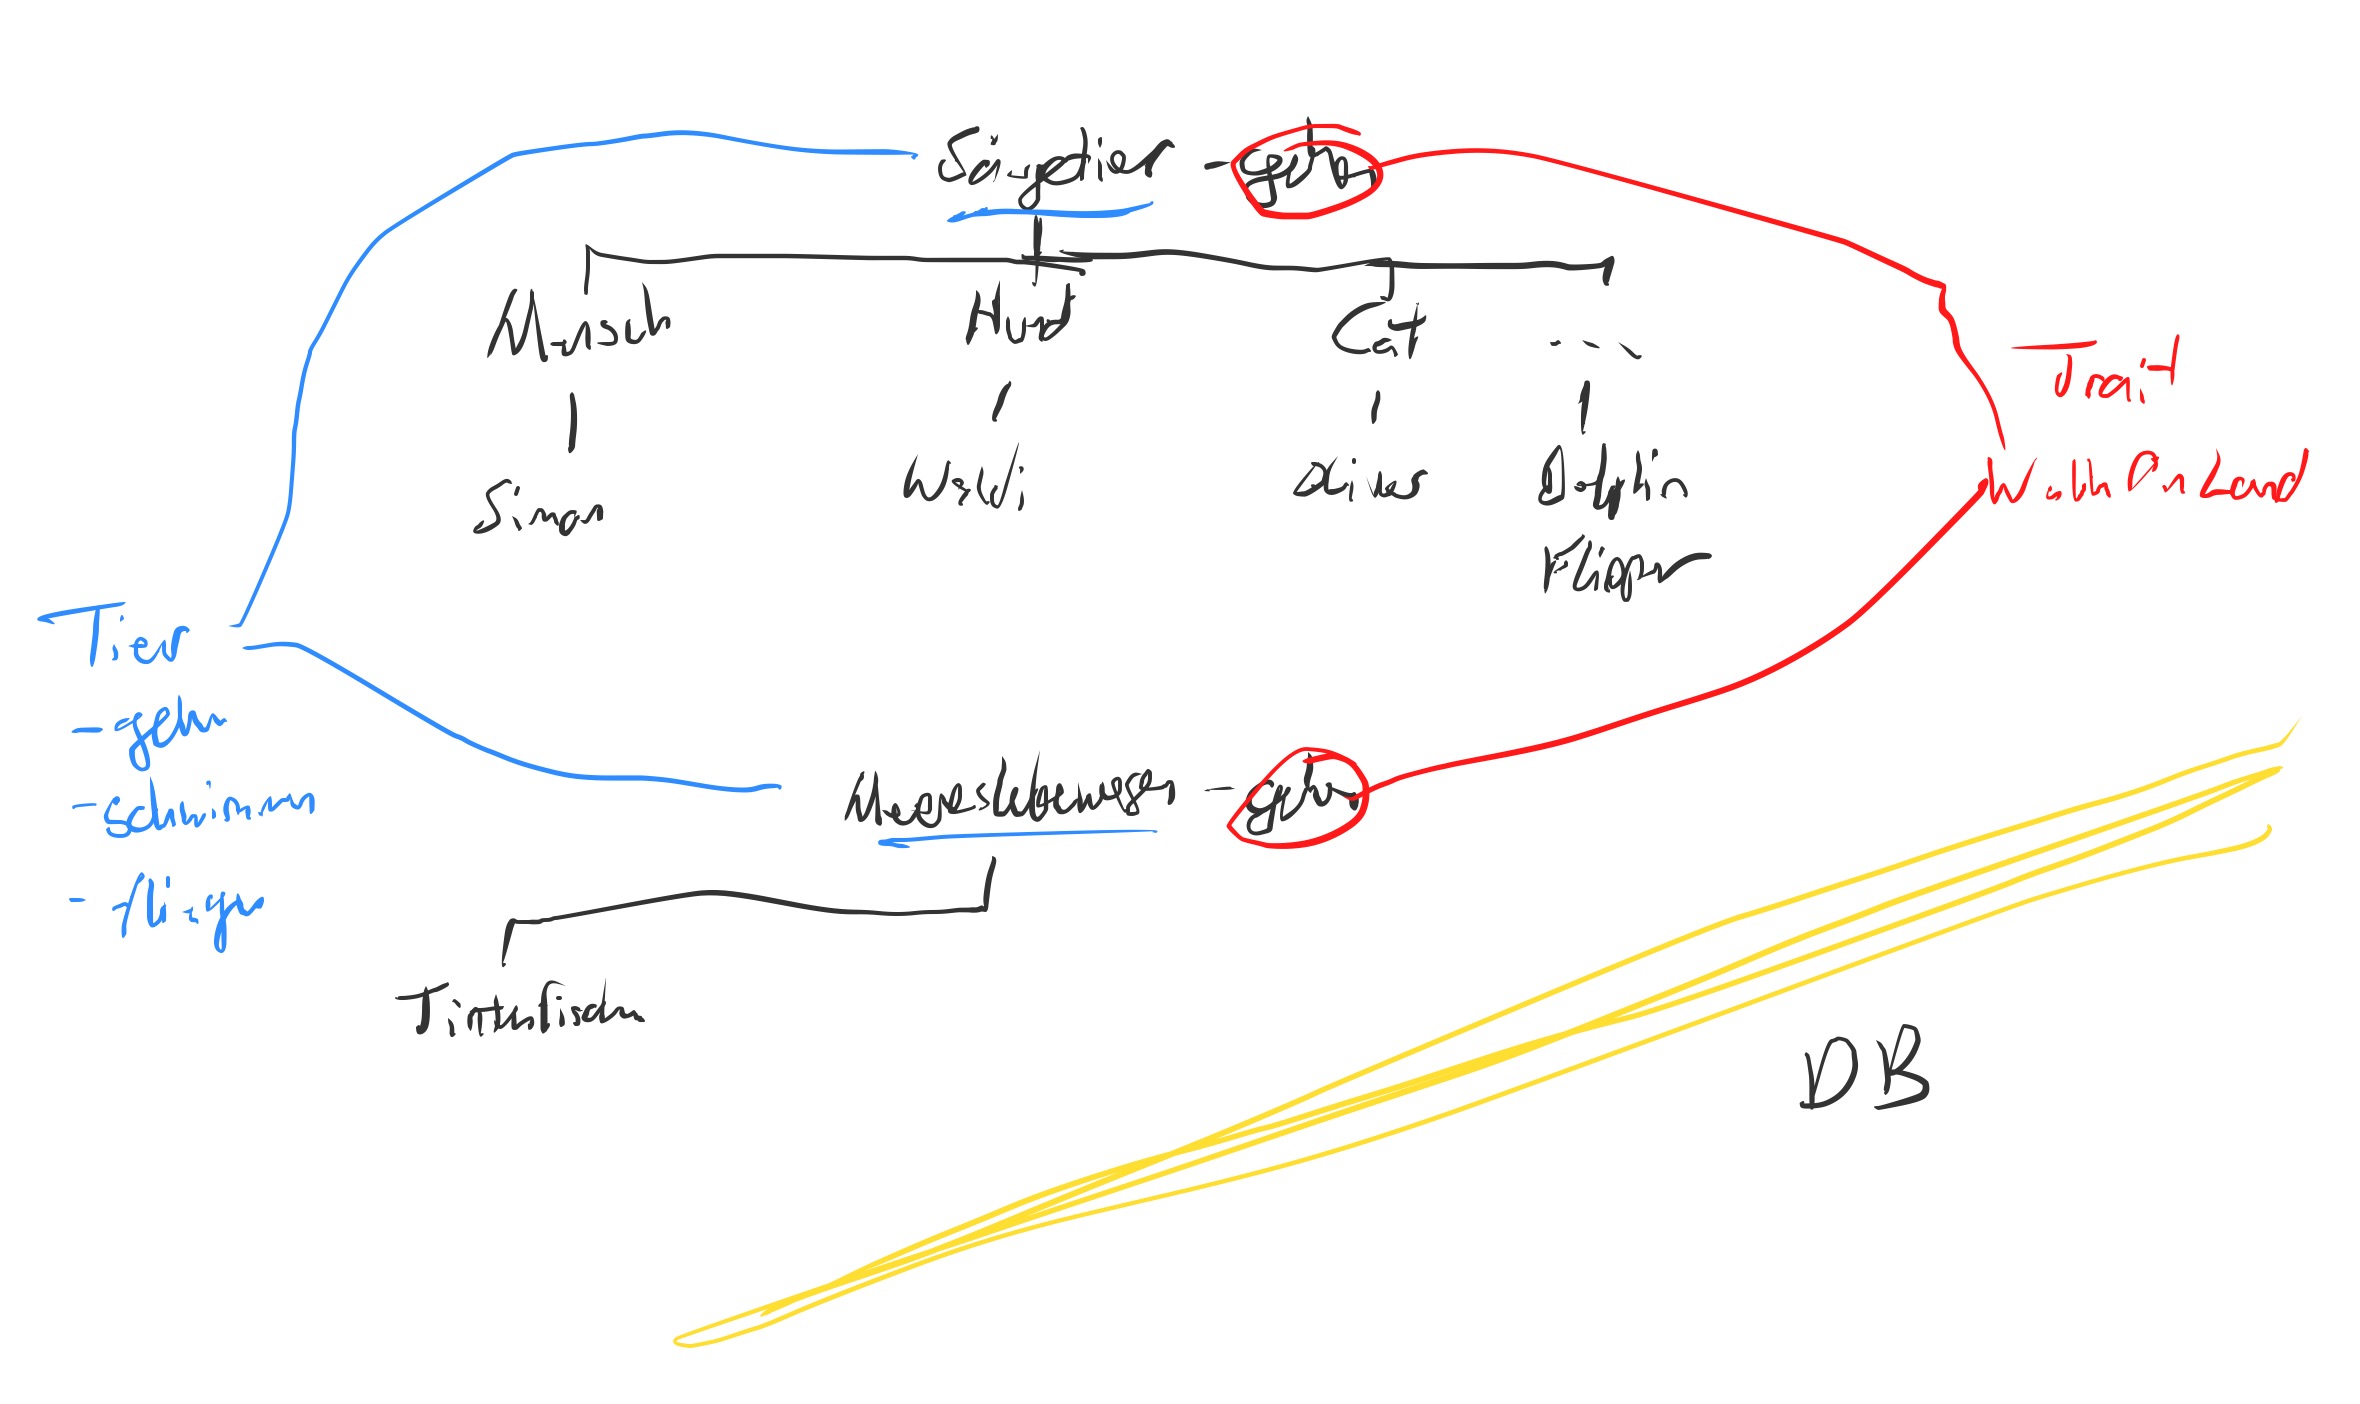 Säugetier - gehen
Mensch Hund Cat ...
Simon Waldi Dolphin
Flipper
Trait
WalkOnLand
Tier
- gehen
- schwimmen
- fliegen
Meereslebewesen - gehen
Tintenfische
DB